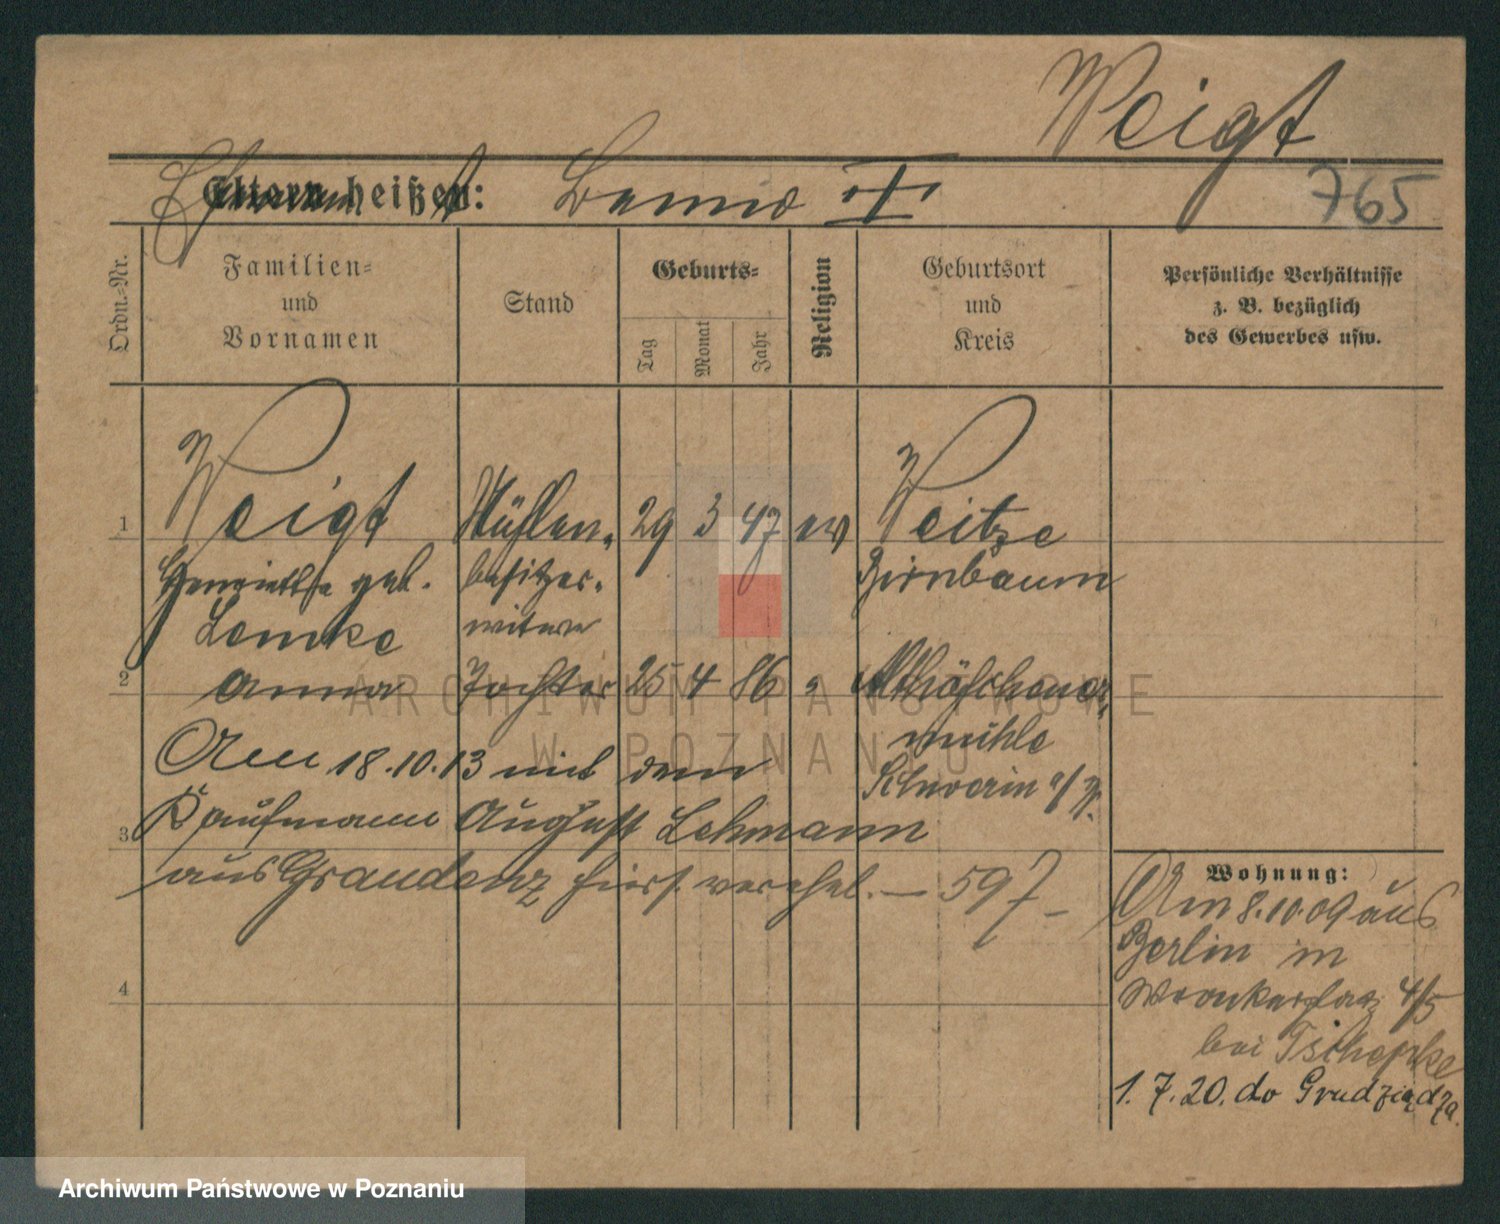 Weigt
Eltern heißen: Benno
765
Ordn.-Nr.
Familien-
und
Vornamen
Stand
Geburts-
Tag
Monat
Jahr
Religion
Geburtsort
und
Kreis
Persönliche Verhältnisse
z. B. bezüglich
des Gewerbes usw.
1 Weigt Mühlen- 29 3 47 ev Weitze
Henriette geb. besitzer- Birnbaum
Lemke witwe
2 Anna Tochter 25 4 86 "
mühle
Schwerin a/W.
Am 18.10.13 mit dem
3 Kaufmann August Lehmann
aus Graudenz hiers. verehel. — 597 —
4
Wohnung:
Am 8.10.09 aus
Berlin in
Wronkerplatz 4/5
bei Tschepke
1.7.20. do Grudziądza.
ARCHIWUM PAŃSTWOWE
W POZNANIU
Archiwum Państwowe w Poznaniu